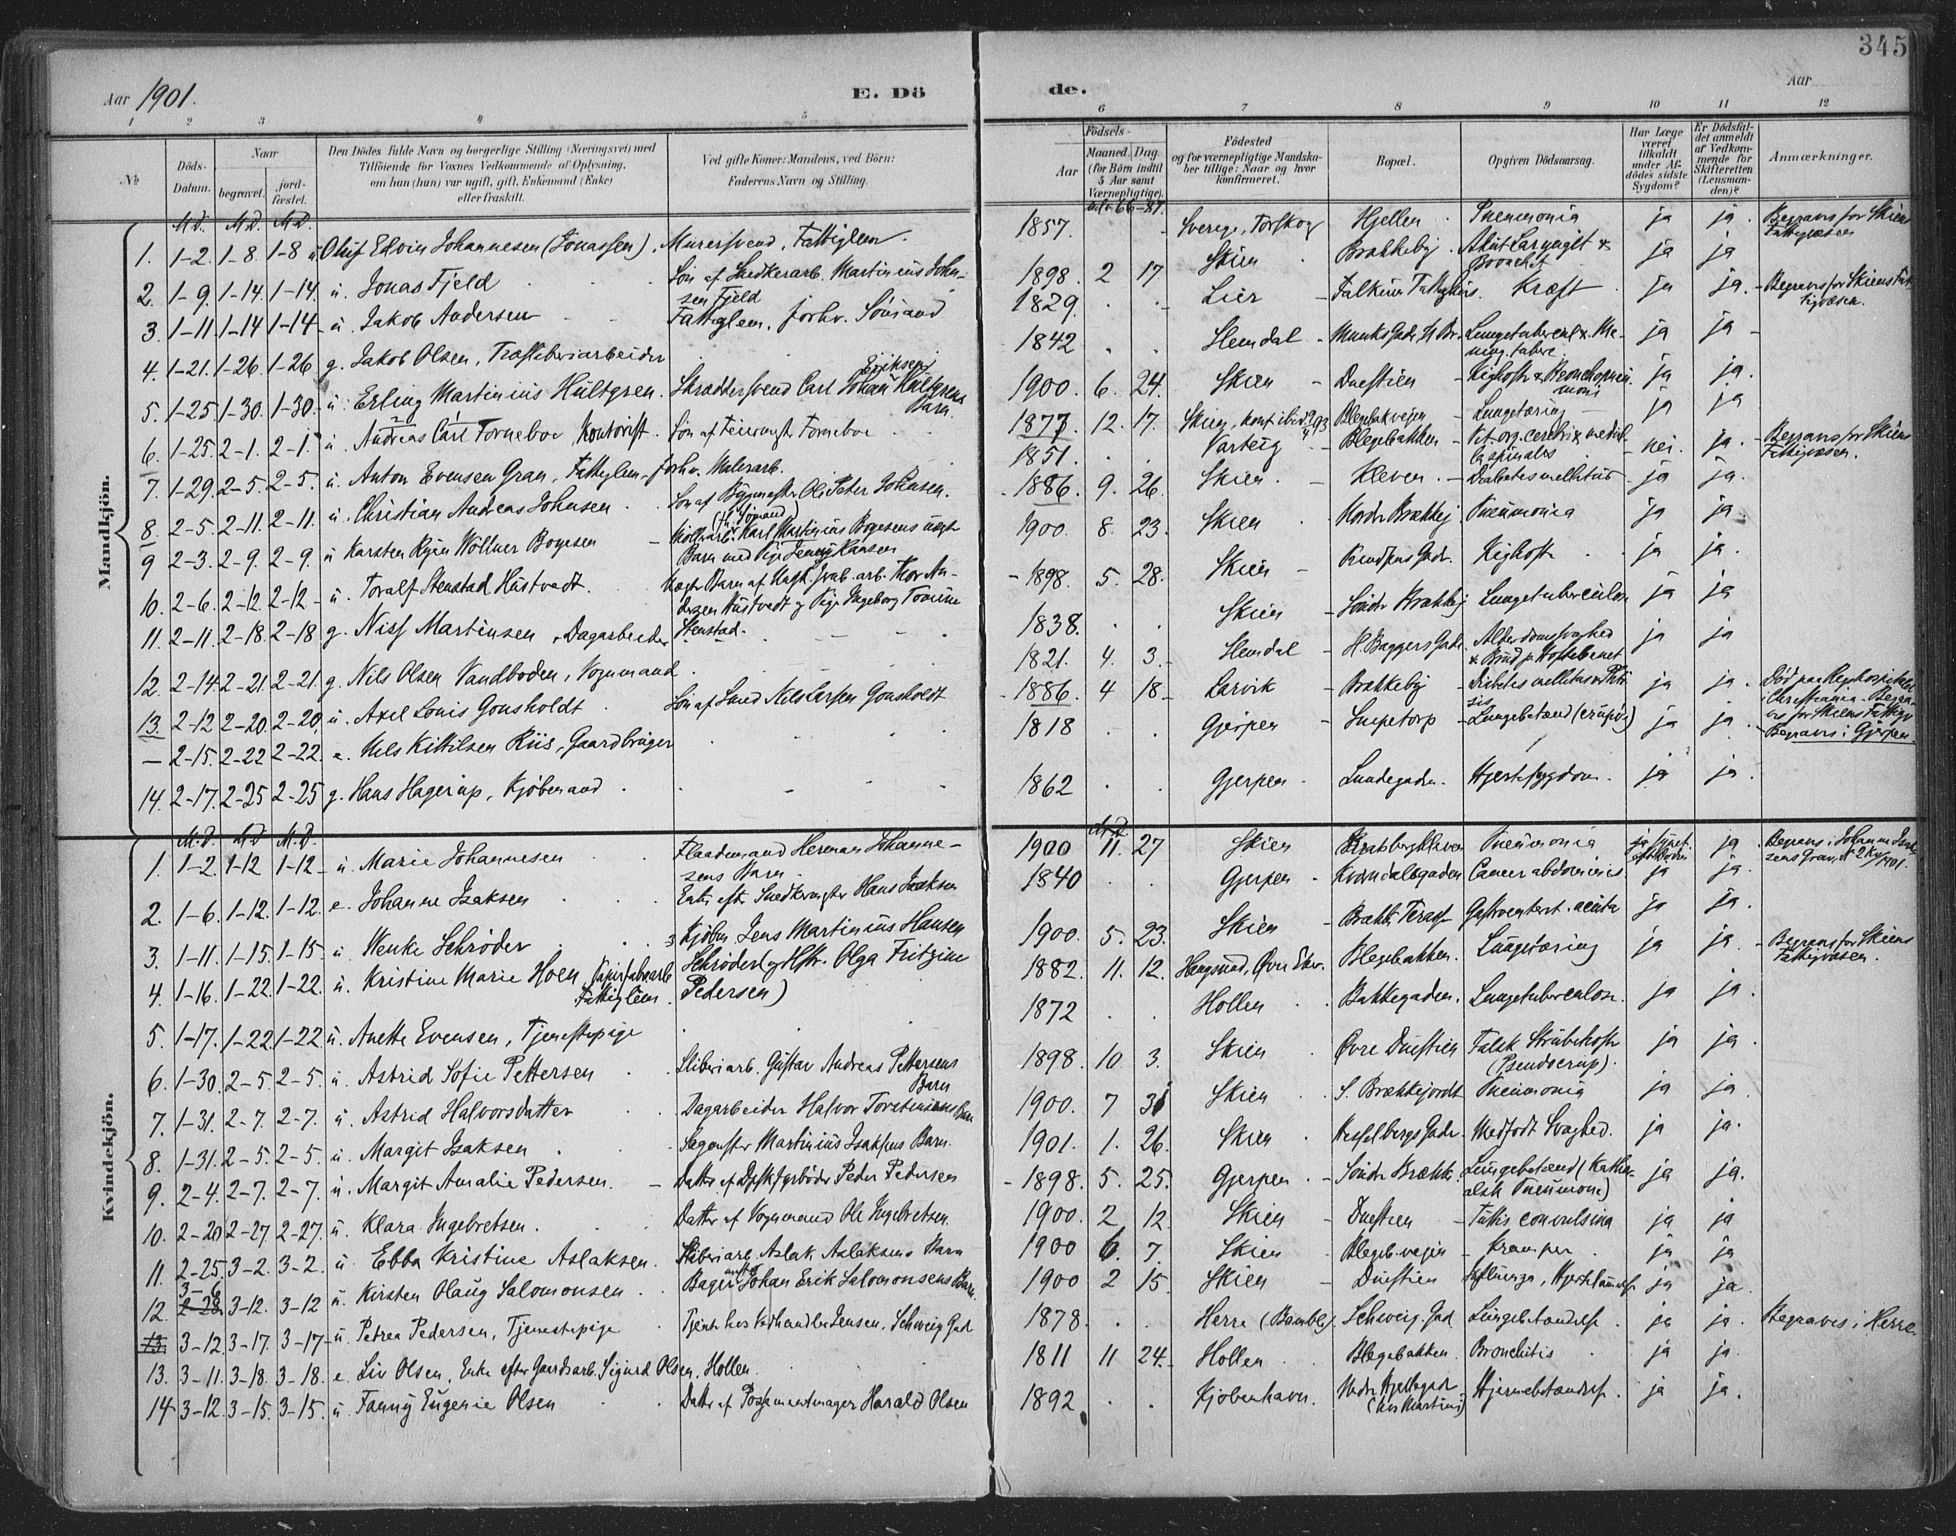 345
Aar 1901.
E. Dö
de.
Aar
1 2 3 4 5 6 7 8 9 10 11 12
No
Döds-Datum.
Naar
begravet.
jord-fæstet.
Den Dödes fulde Navn og borgerlige Stilling (Næringsvei) med
Tilföiende for Voxnes Vedkommende af Oplysning,
om han (hun) var ugift, gift, Enkemand (Enke)
eller fraskilt.
Ved gifte Koner: Mandens, ved Börn:
Faderens Navn og Stilling.
Födsels-
Aar
Maaned. Dag.
(for Börn indtil
5 Aar samt
Værnepligtige).
Födested
og for værnepligtige Mandska-
ber tillige: Naar og hvor
konfirmeret.
Bopæl.
Opgiven Dödsaarsag.
Har Læge
været
tilkaldt
under Af-
dödes sidste
Sygdom?
Er Dödsfal-
det anmeldt
af Vedkom-
mende for
Skifteretten
(Lensman-
den)?
Anmærkninger.
Mandkjön.
M.D. M.D. M.D.
1. 1-2. 1-8. 1-8 u Oluf Edvin Johannesen (Jonassen). Murersvend, Fattiglem. 1857. Sverige, Torskog Hjellen Pneumonia ja ja. Begraves for Skiens Fattigvæsen
2. 1-9. 1-14. 1-14 u. Jonas Fjeld Søn af Snedkerarb. Martinius Johnsen Fjeld 1898 2 17. Skien Brækkeby Akut Laryngit & Bronchit ja ja
3. 1-11. 1-14 1-14 u. Jakob Andersen Fattiglem, forhv. Sømand 1829. Lier Falkum Fattighus. Kræft ja ja. Begraves for Skiens Fattigvæsen.
4. 1-21. 1-26. 1-26 g. Jakob Olsen, Træsliberiarbeider 1842 Slemdal Munks Gade ja ja
5. 1-25. 1-30. 1-30 u. Erling Martinius Hultgren. Skræddersvend Carl Johan Eriksen Hultgrens Barn. 1900. 6. 24. Skien Duestien Kighoste & Bronchopneumoni ja ja.
6. 1-25. 2-1. 2-1. u. Andreas Carl Torneboe, Kontorist. Søn af Feiermgst. Torneboe 1877. 12. 17. Skien, konf. ibid. 93 Blegebakvejen Lungetæring ja ja
7. 1-29. 2-5. 2-5. u. Anton Evensen Gran, Fattiglem. forhv. Malerarb. 1851. Varteig Blegebakken nei. ja. Begraves for Skiens Fattigvæsen.
8. 2-5. 2-11. 2-11. u. Christian Andreas Johnsen Søn af Byggmester Ole Peter Johnsen. 1886. 9. 26. Skien. Kleven. Diabetes mellitus ja ja.
9 2-3. 2-9. 2-9. u Karsten Wöllner Boyesen (fh. Sømand) Karl Martinius Boyesens uægt Barn med Pige Jenny Hansen 1900 8. 23. Skien Nordr Brækkeby Pneumonia ja ja.
10. 2-6. 2-12. 2-12. u. Toralf Stenstad Hustvedt. Uægte Barn af Andersen Hustvedt og Pige Ingeborg Stenstad. 1898. 5. 28. Skien Gade. Kighoste ja ja.
11. 2-11. 2-18. 2-18 g. Niss Martinsen, Dagarbeider 1838. Skien Søndr Brækkeby Lungetuberculose ja ja
12. 2-14. 2-21. 2-21. g. Nils Olsen Vandboden, Vognmand 1821. 4. 3. Slemdal H. Baggers Gade. Alderdomssvaghed & Brud paa Hoftebenet ja ja
13. 2-12 2-20. 2-20. u. Axel Louis Gonsholdt Søn af Smed Nils Larsen Gonsholdt 1886. 4 18 Larvik Brækkeby Diabetes mellitus & Ptisis ja ja. Død paa Rigshospitalet i Christiania. Begraves for Skiens Fattigv.
— 2-15. 2-22 2-22. e. Nils Kittilsen Riis, Gaardbruger 1818 Gjerpen Snipetorp Lungebetænd (crupøs) ja ja. Begraves i Gjerpen.
14. 2-17. 2-25 2-25 g. Hans Hagerup, Kjøbmand 1862 Gjerpen. Lundegaden. Hjertesygdom. ja ja.
Kvindekjön.
M.D. M.D M.D.
1. 1-2. 1-12 1-12 u. Marie Johannesen Flaademand Herman Johannesens Barn. 1900 11. 27 Skien Pneumonia ja. Begraves i Johanne Isaksens Grav
2. 1-6. 1-12. 1-12. e. Johanne Isaksen Enke efter Snedkermgster Hans Isaksen 1840 Gjerpen Kverndalsgaden Cancer abdominis ja ja.
3. 1-11. 1-15. 1-15 u. Wenke Schrøder Kjøbm Jens Martinius Hansen Schrøder (og Hstr. Olga Fritzine Pedersen) 1900. 5. 23. Skien Brækkb. Terasse Gastroenterit. acuta ja ja.
4. 1-16. 1-22. 1-22. u. Kristine Marie Hoen, Papirfabrarb. Fattiglem. 1882. 11. 12. Haugsund, Øvre Eker. Blegebakken. Lungetæring ja ja. Begraves for Skiens Fattigvæsen.
5. 1-17. 1-22. 1-22 u. Anette Evensen, Tjenestepige 1872 Hollen Bakkegaden. Lungetuberculose. ja ja.
6. 1-30. 2-5. 2-5. u. Astrid Sofie Pettersen Sliberiarb. Gustav Andreas Pettersens Barn 1898. 10 3. Skien Øvre Duestien Falsk Strubehoste (Pseudocrup). ja ja.
7. 1-31. 2-7. 2-7. u. Astrid Halvorsdatter Dagarbeider Halvor Torstensens Barn 1900. 7 31 Skien S. Brækkejordt Pneumonia ja ja
8. 1-31. 2-5. 2-5. u. Margit Isaksen Sagmester Martinius Isaksens Barn. 1901. 1. 26. Skien Hesselbergs Gade. Medfødt Svaghed. ja ja.
9. 2-4. 2-7. 2-7. u. Margit Amalie Pedersen. Datter af Dpsk. fyrbøder Peder Pedersen 1898. 5. 25. Gjerpen Søndr Brækk. Lungebetænd (Katharalsk Pneumoni) ja ja.
10. 2-20 2-27 2-27. u. Klara Ingebretsen. Datter af Vognmand Ole Ingebretsen. 1900. 2 12. Skien Duestien Tussis convulsiva ja ja
11. 2-25. 3-2. 3-2. u. Ebba Kristine Aslaksen. Sliberiarb. Aslak Aslaksens Barn 1900 6. 7. Skien Blegeb.vejen Kramper ja ja
12. 3-6 2-28. 3-12. 3-12 u. Kirsten Olaug Salomonsen Bagermster Johan Erik Salomonsens Barn. 1900 2 15. Skien Duestien Influenza, Hjertelammelse ja ja.
13. 3-12. 3-17. 3-17 u. Petrea Pedersen, Tjenestepige Tjente hos Vedhandler Jensen, Schweig. Gad 1878. Herre (Bamble) Schweig. Gad Lungebetændelse. ja ja. Begraves i Herre.
13. 3-11. 3-18. 3-18. e. Liv Olsen, Enke efter Gaardsarb. Sigurd Olsen, Hollen. 1811 11 24. Hollen Blegebakken Bronchitis ja ja.
14 3-12. 3-15. 3-15. u Fanny Eugenie Olsen Datter af Possementmager Harald Olsen 1892 Kjøbenhavn. Nedr Hjellegade (hos Martini) Hjernebetændelse ja ja.